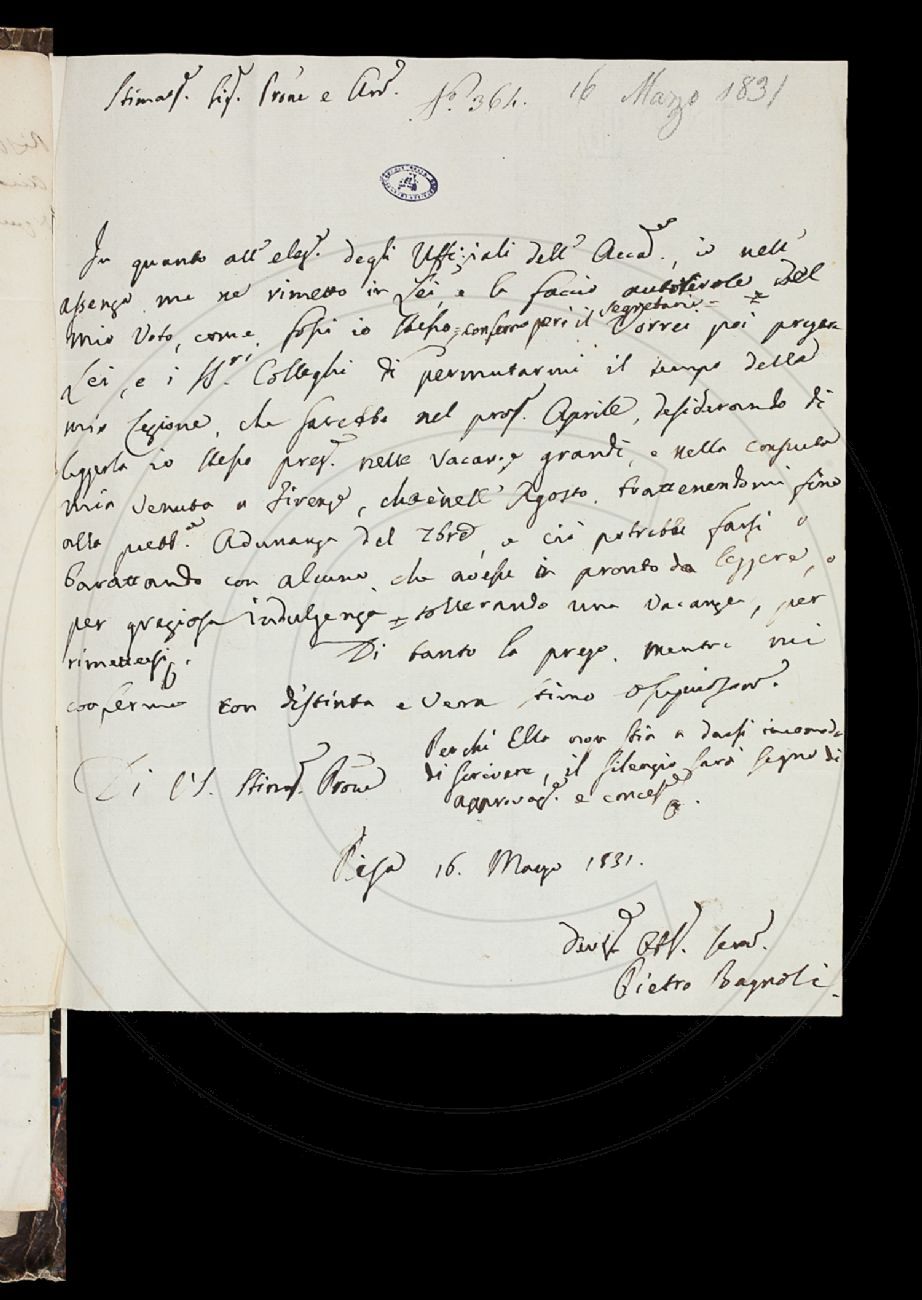 Stimat.e Sig. Prõne e Am.
N.o 364. 16 Marzo 1831
In quanto all'elez.e degli Uffiziali dell'Accad.a, io nell'
assenza me ne rimetto in Lei, e la faccio autorevole del
mio Voto, come fossi io stesso, confermo però il Segretario = Vorrei poi pregar
Lei, e i SS.ri Colleghi di permutarmi il tempo della
mia Lezione, che sarebbe nel pross. Aprile, desiderando di
leggerla io stesso pres.e nelle Vacanze grandi, e nella consueta
mia venuta a Firenze, che è nell'Agosto, trattenendomi fino
alla pubb.a Adunanza del 7bre, e ciò potrebbe farsi o
barattando con alcuno, che avesse in pronto da leggere, o
per graziosa indulgenza = tollerando una Vacanza, per
rimettersi.
Di tanto la prego. mentre mi
confermo con distinta e vera stima ossequiosam.e
Perché Ella non stia a darsi incomodo
di scrivere, il silenzio sarà segno di
approvaz.e e concess.e
Di V.S. Stimat. Prõne
Pisa 16. Marzo 1831.
Devot.o Obb. Serv.
Pietro Bagnoli.